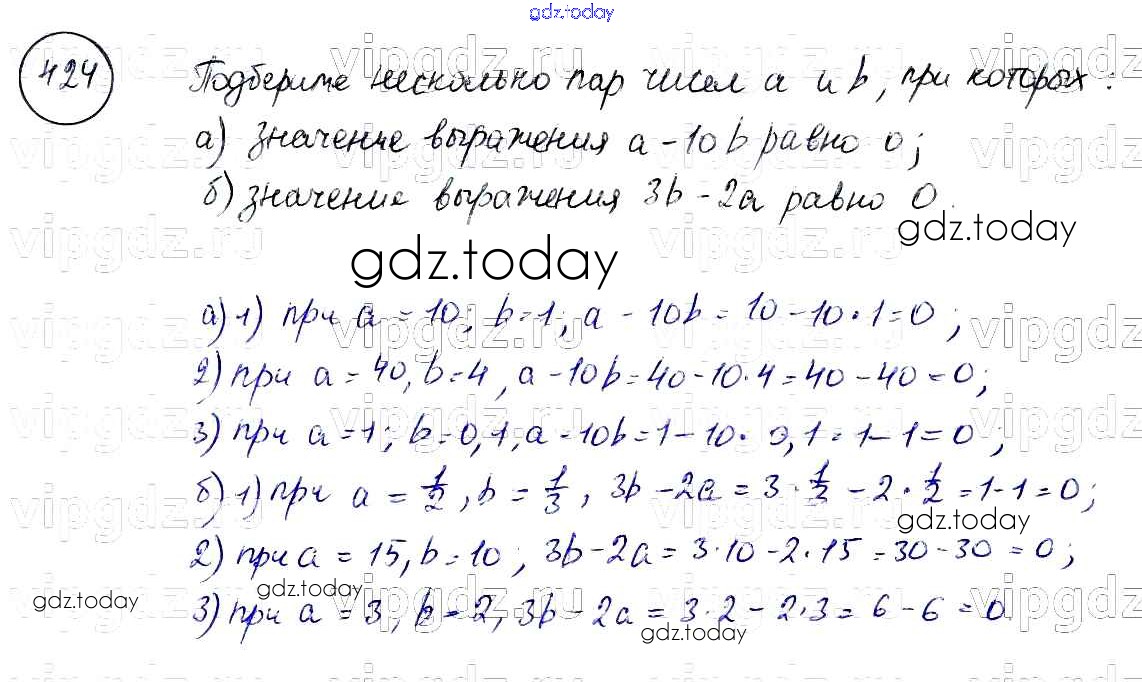 gdz.today
424 Подберите несколько пар чисел a и b, при которых:
а) значение выражения a - 10b равно 0;
б) значение выражения 3b - 2a равно 0.
gdz.today
gdz.today
а) 1) при a = 10, b = 1, a - 10b = 10 - 10 · 1 = 0;
2) при a = 40, b = 4, a - 10b = 40 - 10 · 4 = 40 - 40 = 0;
3) при a = 1; b = 0,1, a - 10b = 1 - 10 · 0,1 = 1 - 1 = 0;
б) 1) при a = 1/2, b = 1/3, 3b - 2a = 3 · 1/3 - 2 · 1/2 = 1 - 1 = 0;
gdz.today
2) при a = 15, b = 10; 3b - 2a = 3 · 10 - 2 · 15 = 30 - 30 = 0;
gdz.today
gdz.today
3) при a = 3, b = 2, 3b - 2a = 3 · 2 - 2 · 3 = 6 - 6 = 0
gdz.today
vipgdz.ru